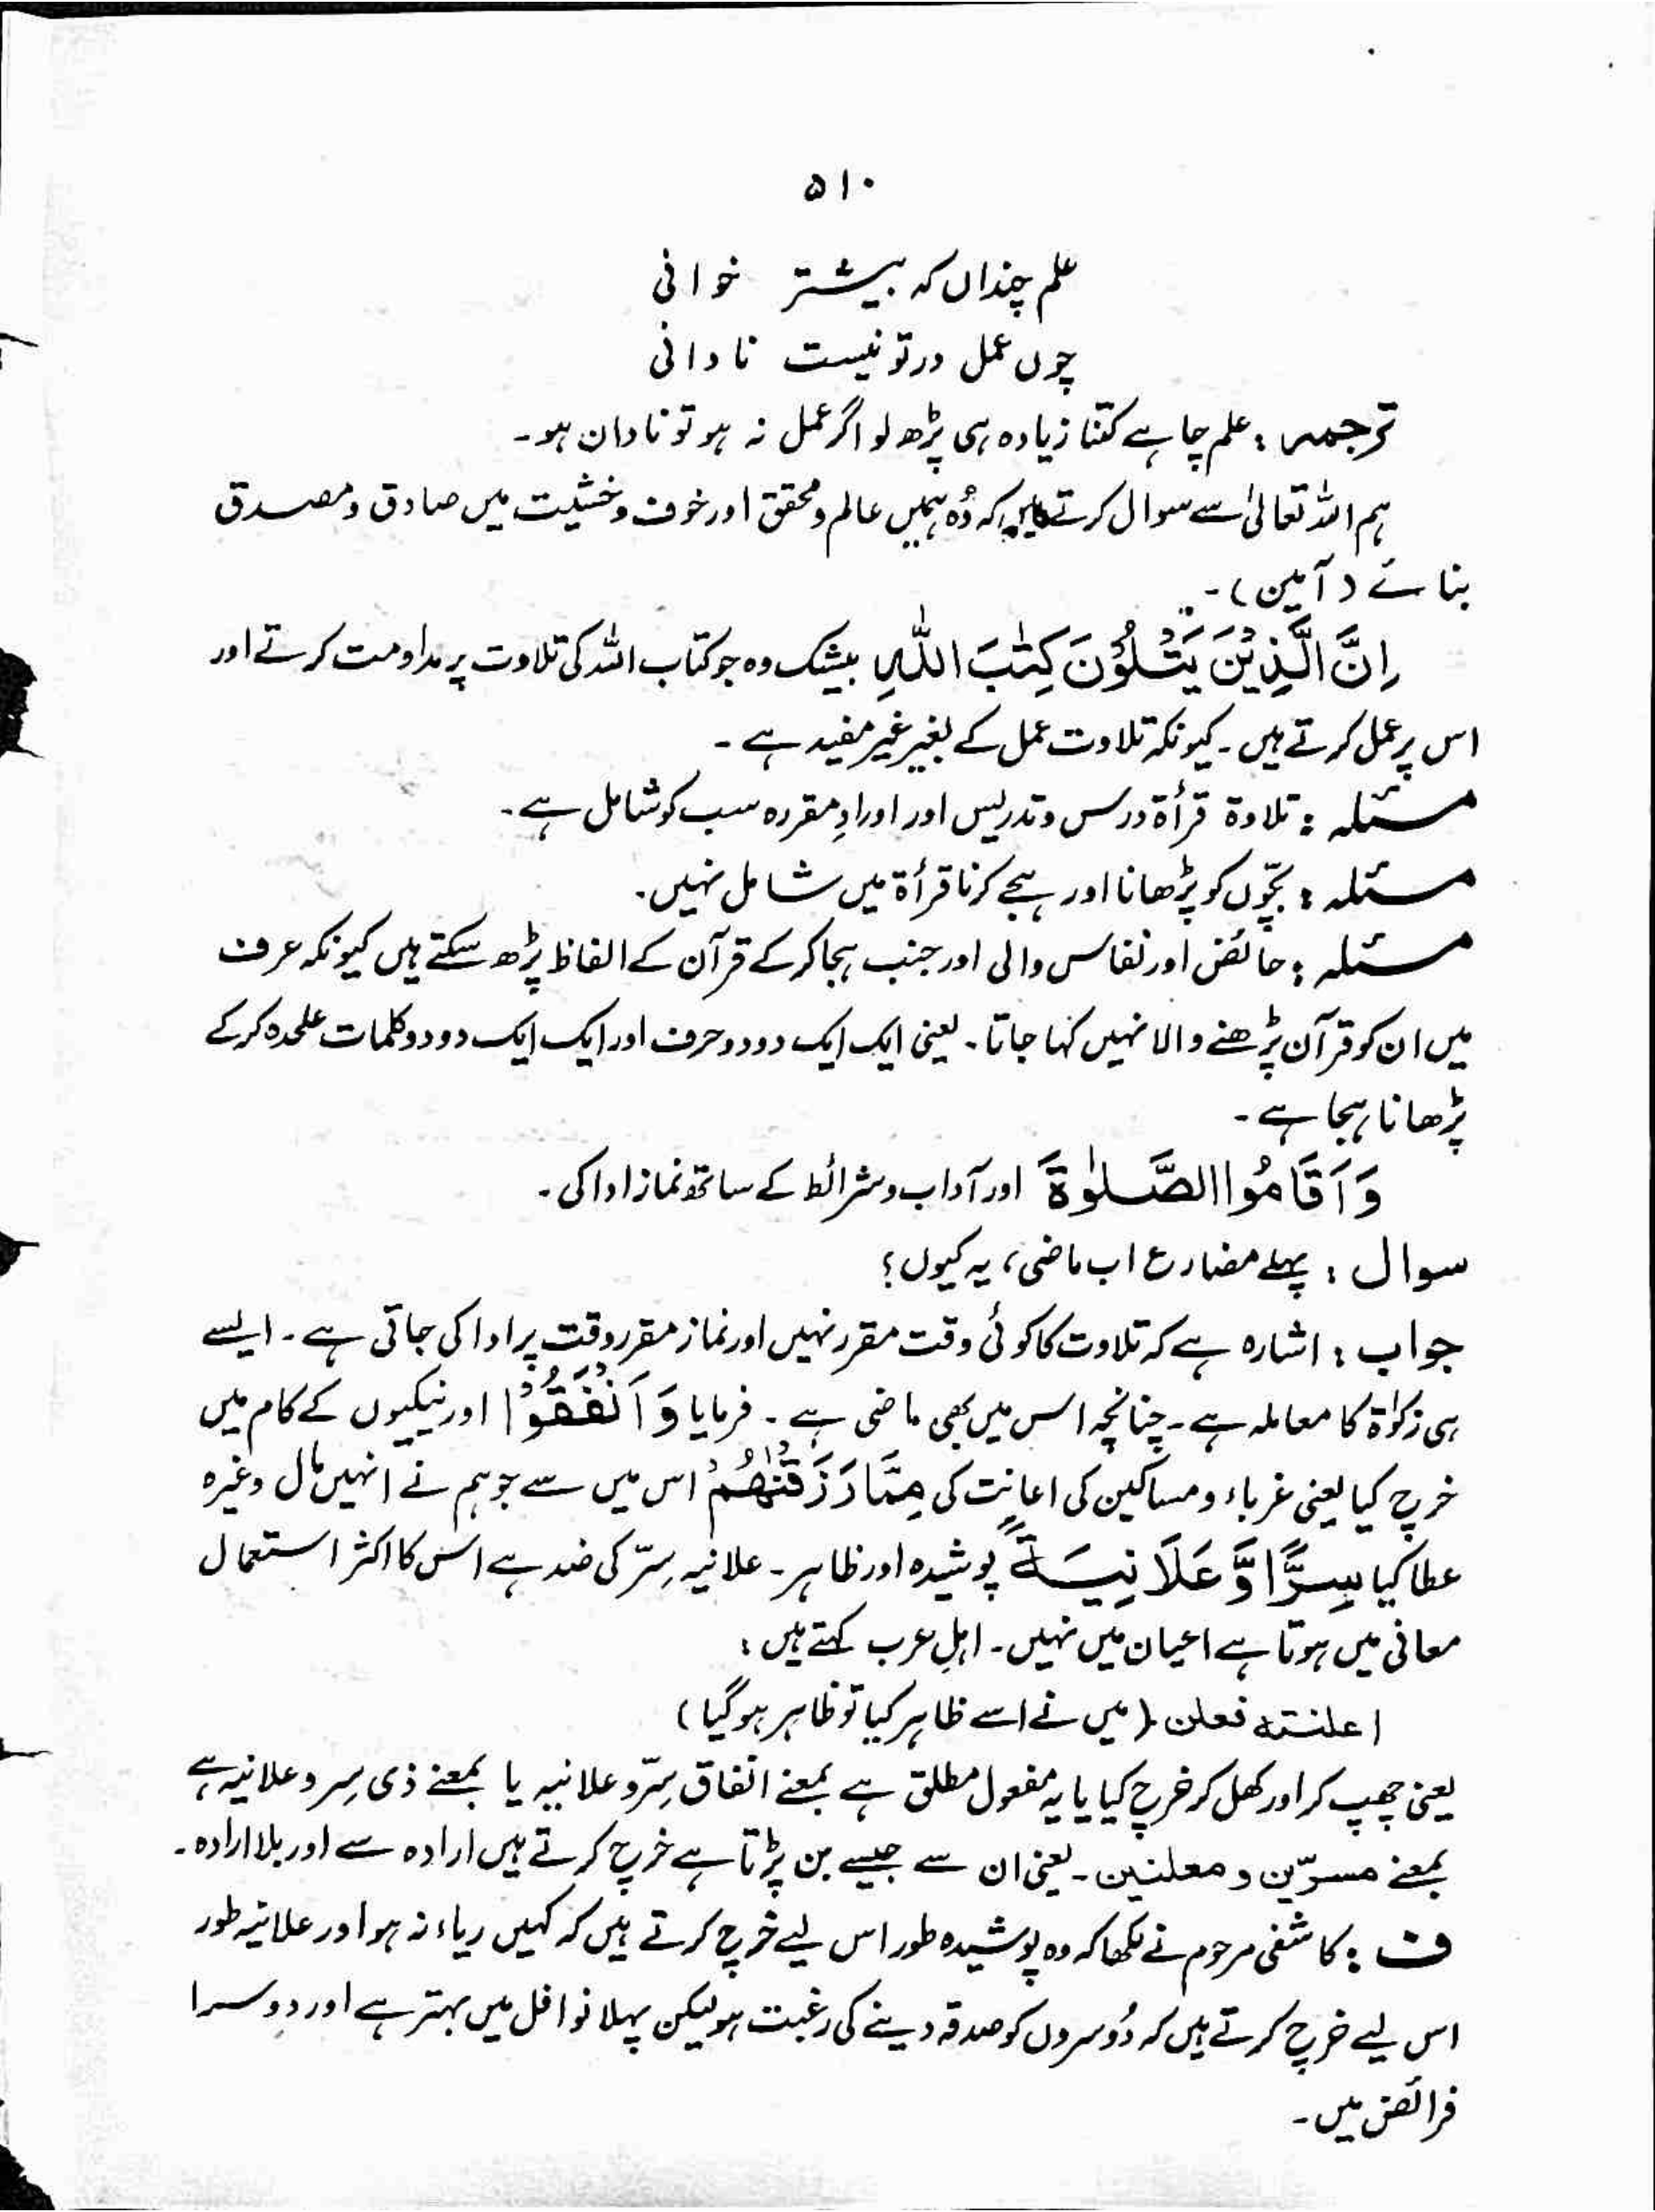 ۵۱۰
علم چنداں کہ بیشتر خوانی
چوں عمل در تو نیست نادانی
ترجمہ : علم چاہے کتنا زیادہ ہی پڑھ لو اگر عمل نہ ہو تو نادان ہو۔
ہم اللہ تعالیٰ سے سوال کرتے ہیں کہ وُہ ہمیں عالم و محقق اور خوف و خشیت میں صادق و مصدق
بنائے (آمین)۔
اِنَّ الَّذِیْنَ یَتْلُوْنَ کِتٰبَ اللّٰہِ بیشک وہ جو کتاب اللہ کی تلاوت پر مداومت کرتے اور
اس پر عمل کرتے ہیں۔ کیونکہ تلاوت عمل کے بغیر غیر مفید ہے۔
مسئلہ : تلاوۃ قرأۃ درس و تدریس اور اورادِ مقررہ سب کو شامل ہے۔
مسئلہ : بچّوں کو پڑھانا اور ہجے کرنا قرأۃ میں شامل نہیں۔
مسئلہ : حائض اور نفاس والی اور جنب ہجا کر کے قرآن کے الفاظ پڑھ سکتے ہیں کیونکہ عرف
میں ان کو قرآن پڑھنے والا نہیں کہا جاتا۔ یعنی ایک ایک دو دو حرف اور ایک ایک دو دو کلمات علٰحدہ کر کے
پڑھانا ہجا ہے۔
وَ اَقَامُوا الصَّلٰوۃَ اور آداب و شرائط کے ساتھ نماز ادا کی۔
سوال : پہلے مضارع اب ماضی، یہ کیوں؟
جواب : اشارہ ہے کہ تلاوت کا کوئی وقت مقرر نہیں اور نماز مقرر وقت پر ادا کی جاتی ہے۔ ایسے
ہی زکوٰۃ کا معاملہ ہے۔ چنانچہ اس میں بھی ماضی ہے۔ فرمایا وَ اَنْفَقُوْا اور نیکیوں کے کام میں
خرچ کیا یعنی غرباء و مساکین کی اعانت کی مِمَّا رَزَقْنٰھُمْ اس میں سے جو ہم نے انہیں مال وغیرہ
عطا کیا سِرًّا وَّ عَلَانِیَۃً پوشیدہ اور ظاہر۔ علانیہ سِرّ کی ضد ہے اس کا اکثر استعمال
معانی میں ہوتا ہے اعیان میں نہیں۔ اہلِ عرب کہتے ہیں :
اعلنته فعلن (میں نے اسے ظاہر کیا تو ظاہر ہو گیا)
یعنی چھپ کر اور کھل کر خرچ کیا یا یہ مفعول مطلق ہے بمعنے انفاق سِرّ و علانیہ یا بمعنے ذی سِر و علانیہ ہے
بمعنے مسرّین و معلنین۔ یعنی ان سے جیسے بن پڑتا ہے خرچ کرتے ہیں ارادہ سے اور بلا ارادہ۔
ف : کاشفی مرحوم نے لکھا کہ وہ پوشیدہ طور اس لیے خرچ کرتے ہیں کہ کہیں ریاء نہ ہو اور علانیہ طور
اس لیے خرچ کرتے ہیں کہ دُوسروں کو صدقہ دینے کی رغبت ہو لیکن پہلا نوافل میں بہتر ہے اور دوسرا
فرائض میں۔